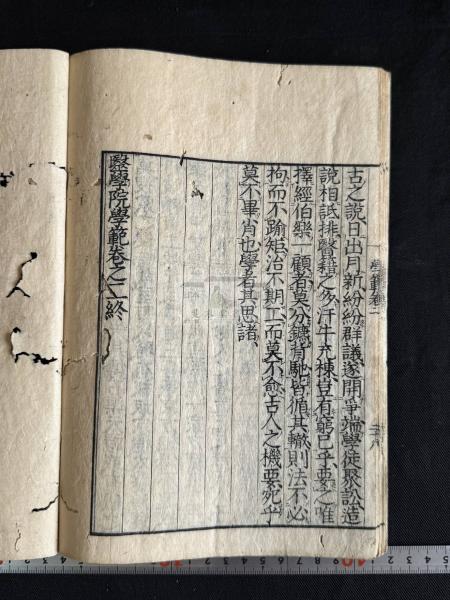 古之説日出月新紛紛群議遂開爭端學徒聚訟造
説相詆排醫籍之多汗牛充棟豈有窮已乎要之唯
擇經伯樂一顧者莫分鑣背馳皆循其轍則法不必
拘而不踰矩治不期工而莫不愈古人之機要死乎
莫不畢肖也學者其思諸
醫學院學範卷之二終
學範卷二
二十八